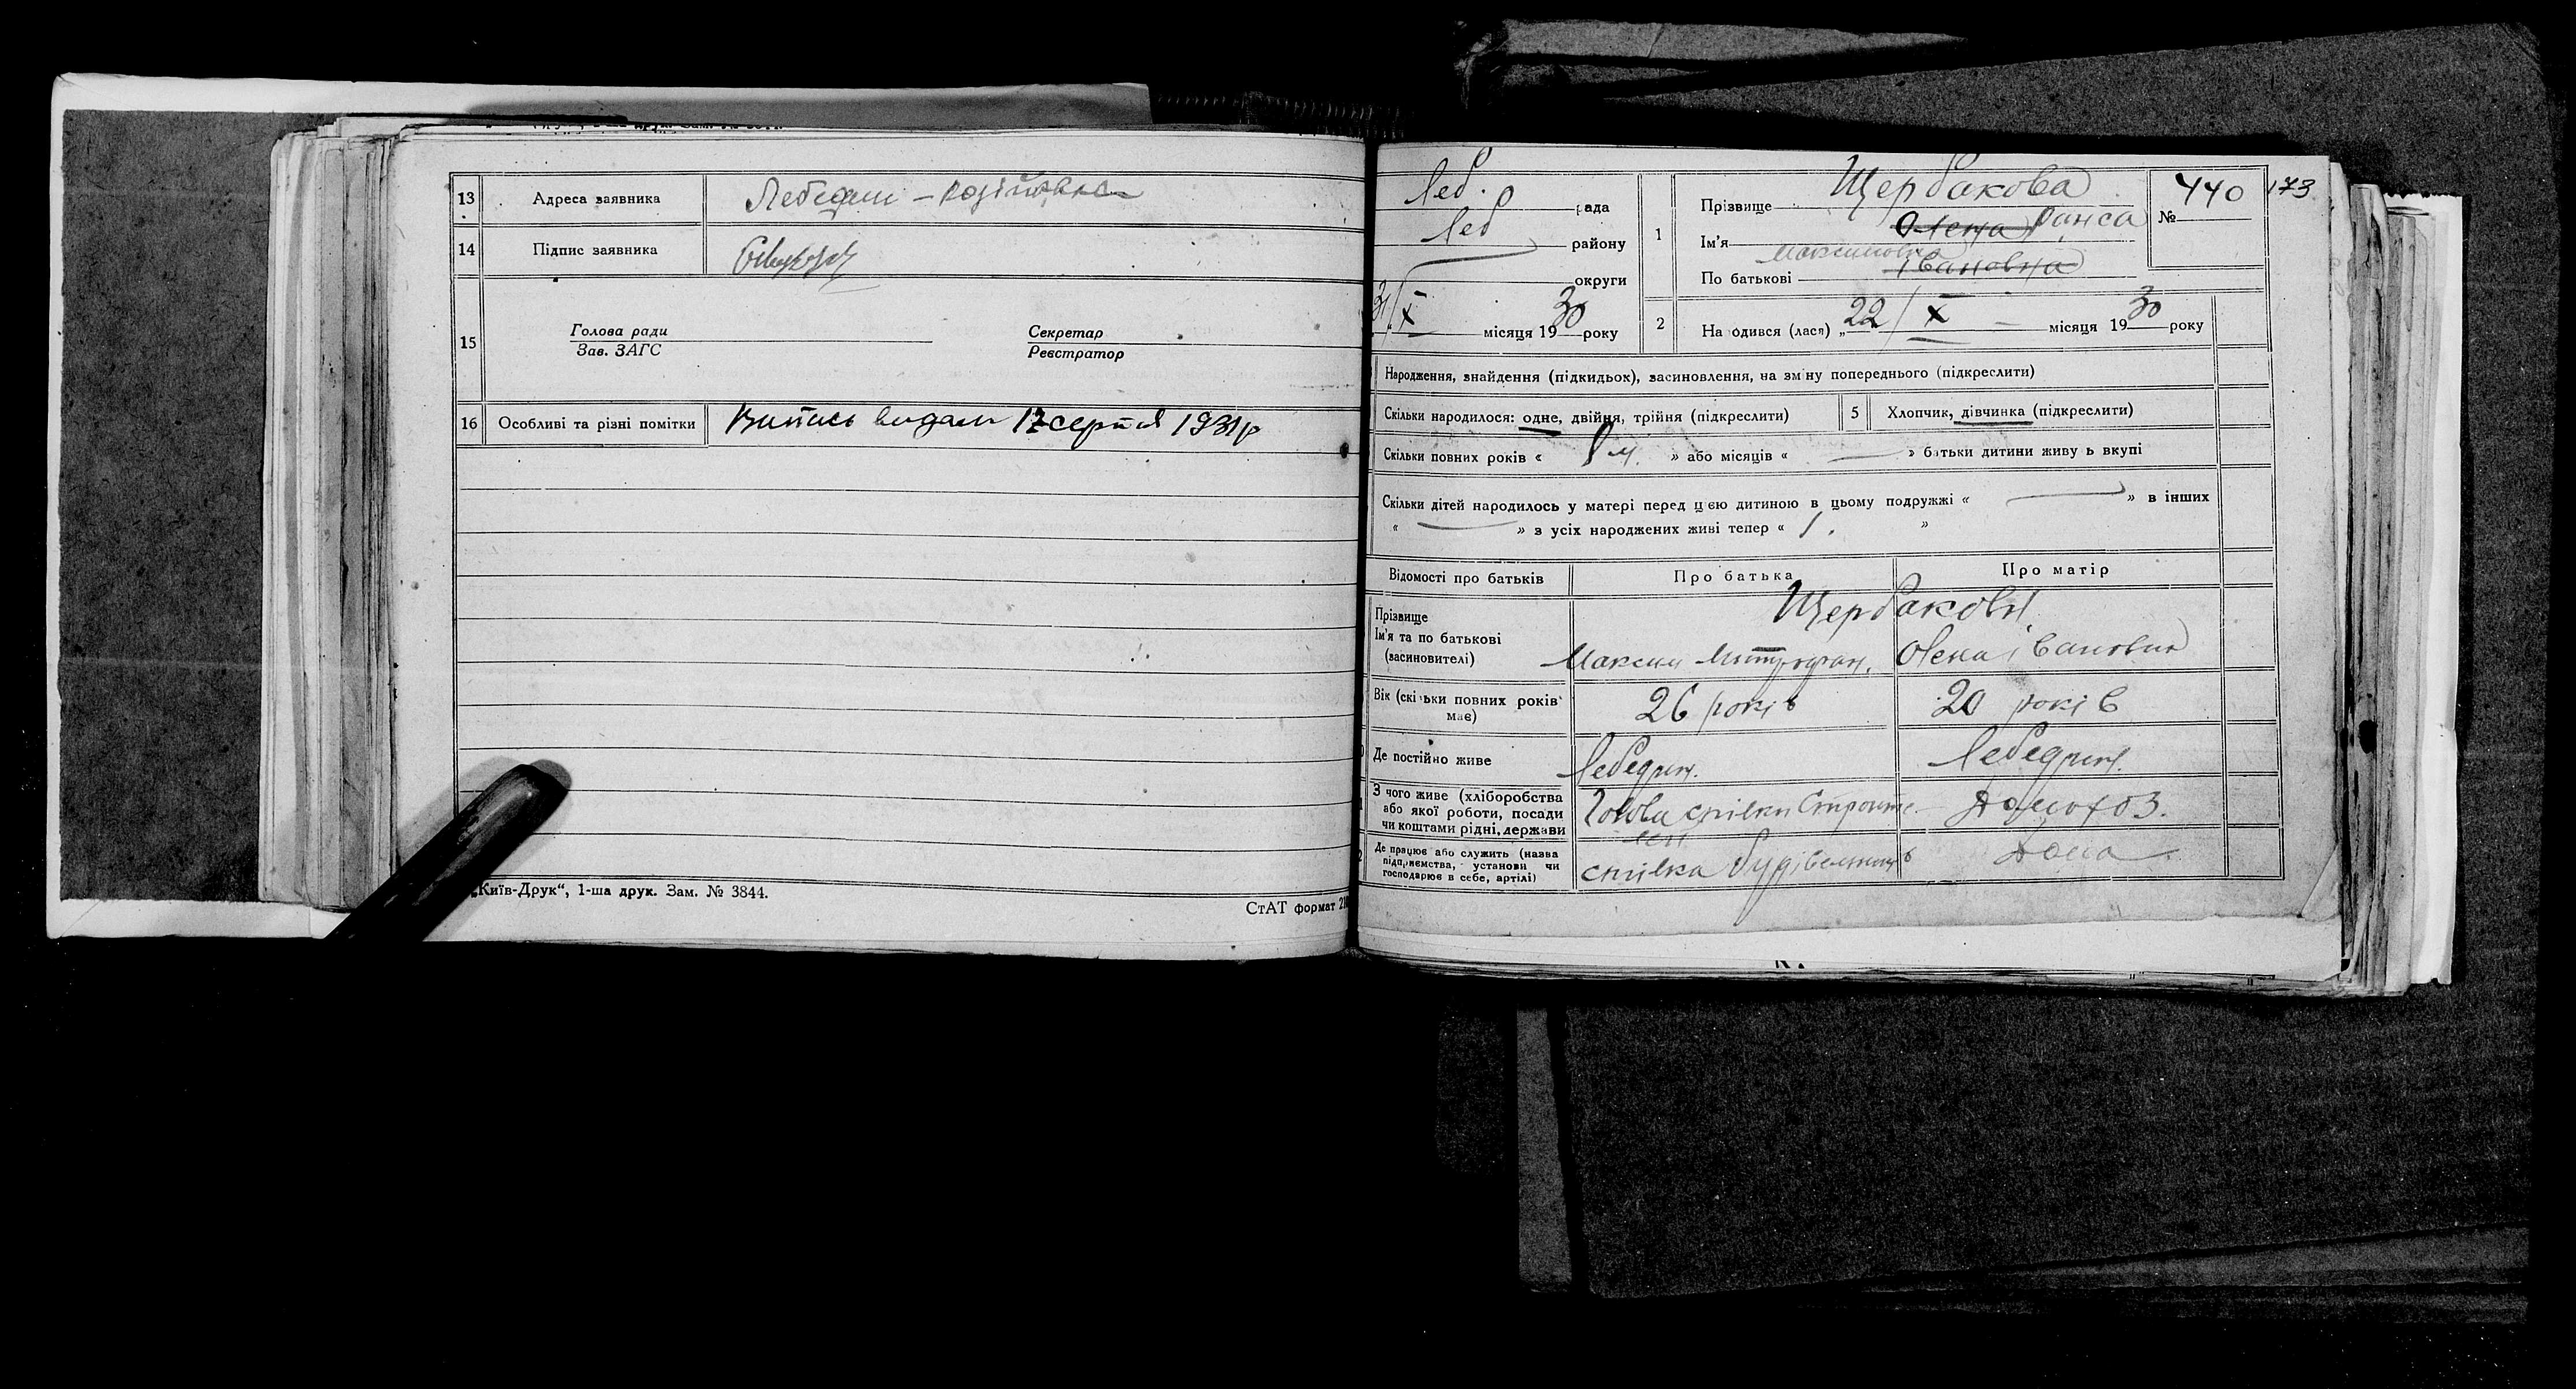 13 Адреса заявника Лебедин –
14 Підпис заявника
15 Голова ради Секретар
Зав. ЗАГС Реєстратор
16 Особливі та різні помітки Випись видали 17 серпня 1931 р
„Київ-Друк“, 1-ша друк. Зам. № 3844.
СтАТ формат
Леб. р рада
Лед району
округи
31/X місяця 1930 року
1 Прізвище Щербакова
Ім'я Олена Раиса
По батькові Максимовна Івановна
№ 440 173
2 На одився (лася) „22/X місяця 1930 року
Народження, знайдення (підкидьок), засиновлення, на зміну попереднього (підкреслити)
Скільки народилося: одне, двійня, трійня (підкреслити) 5 Хлопчик, дівчинка (підкреслити)
Скільки повних років « » або місяців « — » батьки дитини живу ь вкупі
Скільки дітей народилось у матері перед цією дитиною в цьому подружжі « — » в інших
« — » з усіх народжених живі тепер « 1. »
Відомості про батьків Про батька Про матір
Прізвище Щербакови
Ім'я та по батькові
(засиновителі) Максим Митрофан. Олена Івановна
Вік (скі ьки повних років 26 років 20 років
має)
Де постійно живе Лебедин. Лебедин.
З чого живе (хліборобства
або якої роботи, посади Голова спілки Строите- Домохоз.
чи коштами рідні, держави
лей
Де працює або служить (назва
підприємства, установи чи спілка будівельників Дома
господарює в себе, артілі)